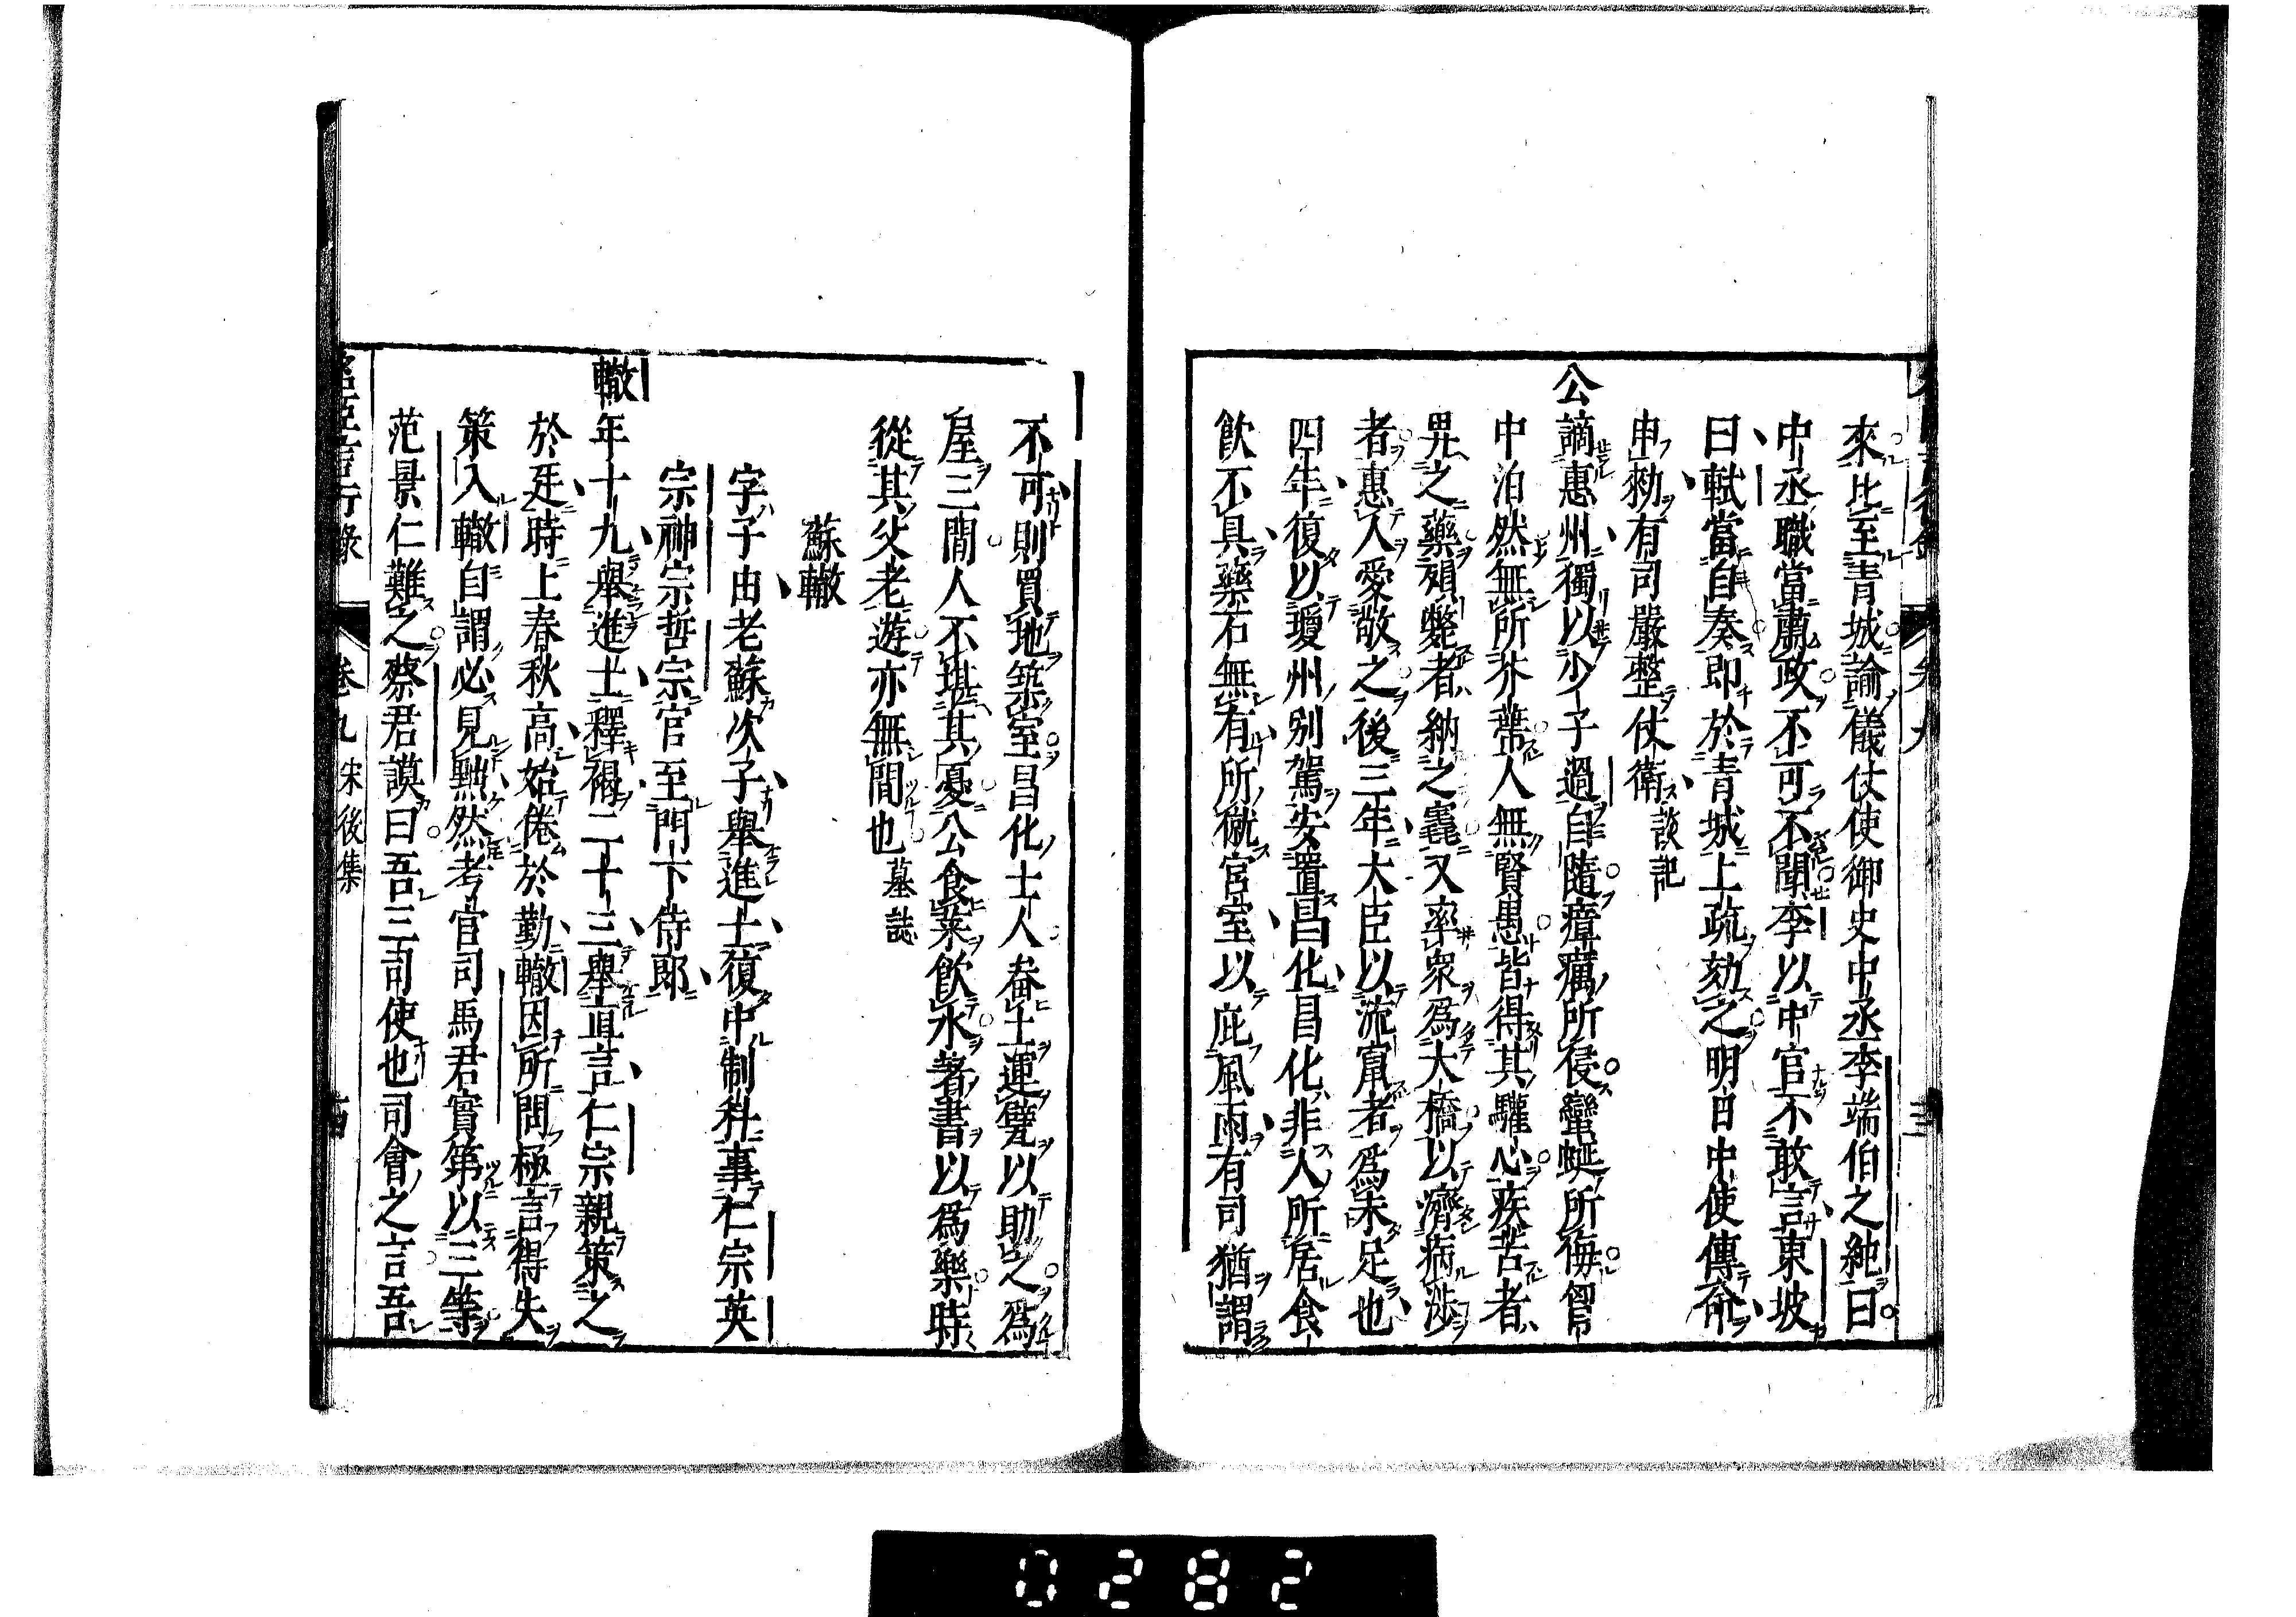 來比至青城諭儀仗使御史中丞李端伯之純曰
中丞職當肅政不可不聞李以中官不敢言東坡
曰軾當自奏即於青城上疏劾之明日中使傳命
申勑有司嚴整仗衛談記
公謫惠州獨以少子過自隨瘴癘所侵蠻蜒所侮胷
中泊然無所芥蔕人無賢愚皆得其驩心疾苦者
畀之藥殞斃者納之竁又率衆爲大橋以濟病涉
者惠人愛敬之後三年大臣以流竄者爲未足也
四年復以瓊州别駕安置昌化昌化非人所居食
飮不具藥石無有所僦官室以庇風雨有司猶謂
不可則買地築室昌化士人畚土運甓以助之爲
屋三間人不堪其憂公食菜飮水著書以爲樂時
從其父老遊亦無間也墓誌
蘇轍
字子由老蘇次子舉進士復中制科事仁宗英
宗神宗哲宗官至門下侍郎
轍年十九舉進士釋褐二十三舉直言仁宗親策之
於廷時上春秋高始倦於勤轍因所問極言得失
策入轍自謂必見黜然考官司馬君實第以三等
范景仁難之蔡君謨曰吾三司使也司會之言吾
名臣言行錄
卷九
宋後集
十四
0282